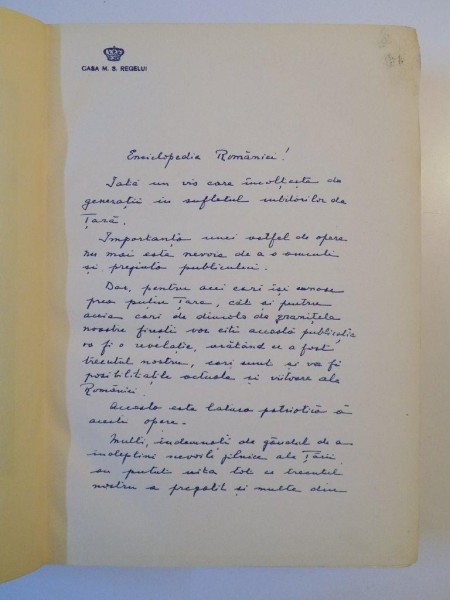 CASA M. S. REGELUI
Enciclopedia României!
Iată un vis care încolțește de
generații în sufletul iubitorilor de
Țară.
Importanța unei astfel de opere
nu mai este nevoie de a o aminti
și preginta publicului.
Dar, pentru acei cari își cunosc
prea puțin Țara, cât și pentru
aceia cari de dincolo de granițele
noastre firești vor citi această publicație
va fi o revelație, arătând ce a fost
trecutul nostru, cari sunt și va fi
posibilitățile actuale și viitoare ale
României.
Aceasta este latura patriotică a
acestei opere.
Mulți, îndemnați de gândul de a
îndeplini nevoile zilnice ale Țării
au putut uita tot ce trecutul
nostru a pregătit și multe din